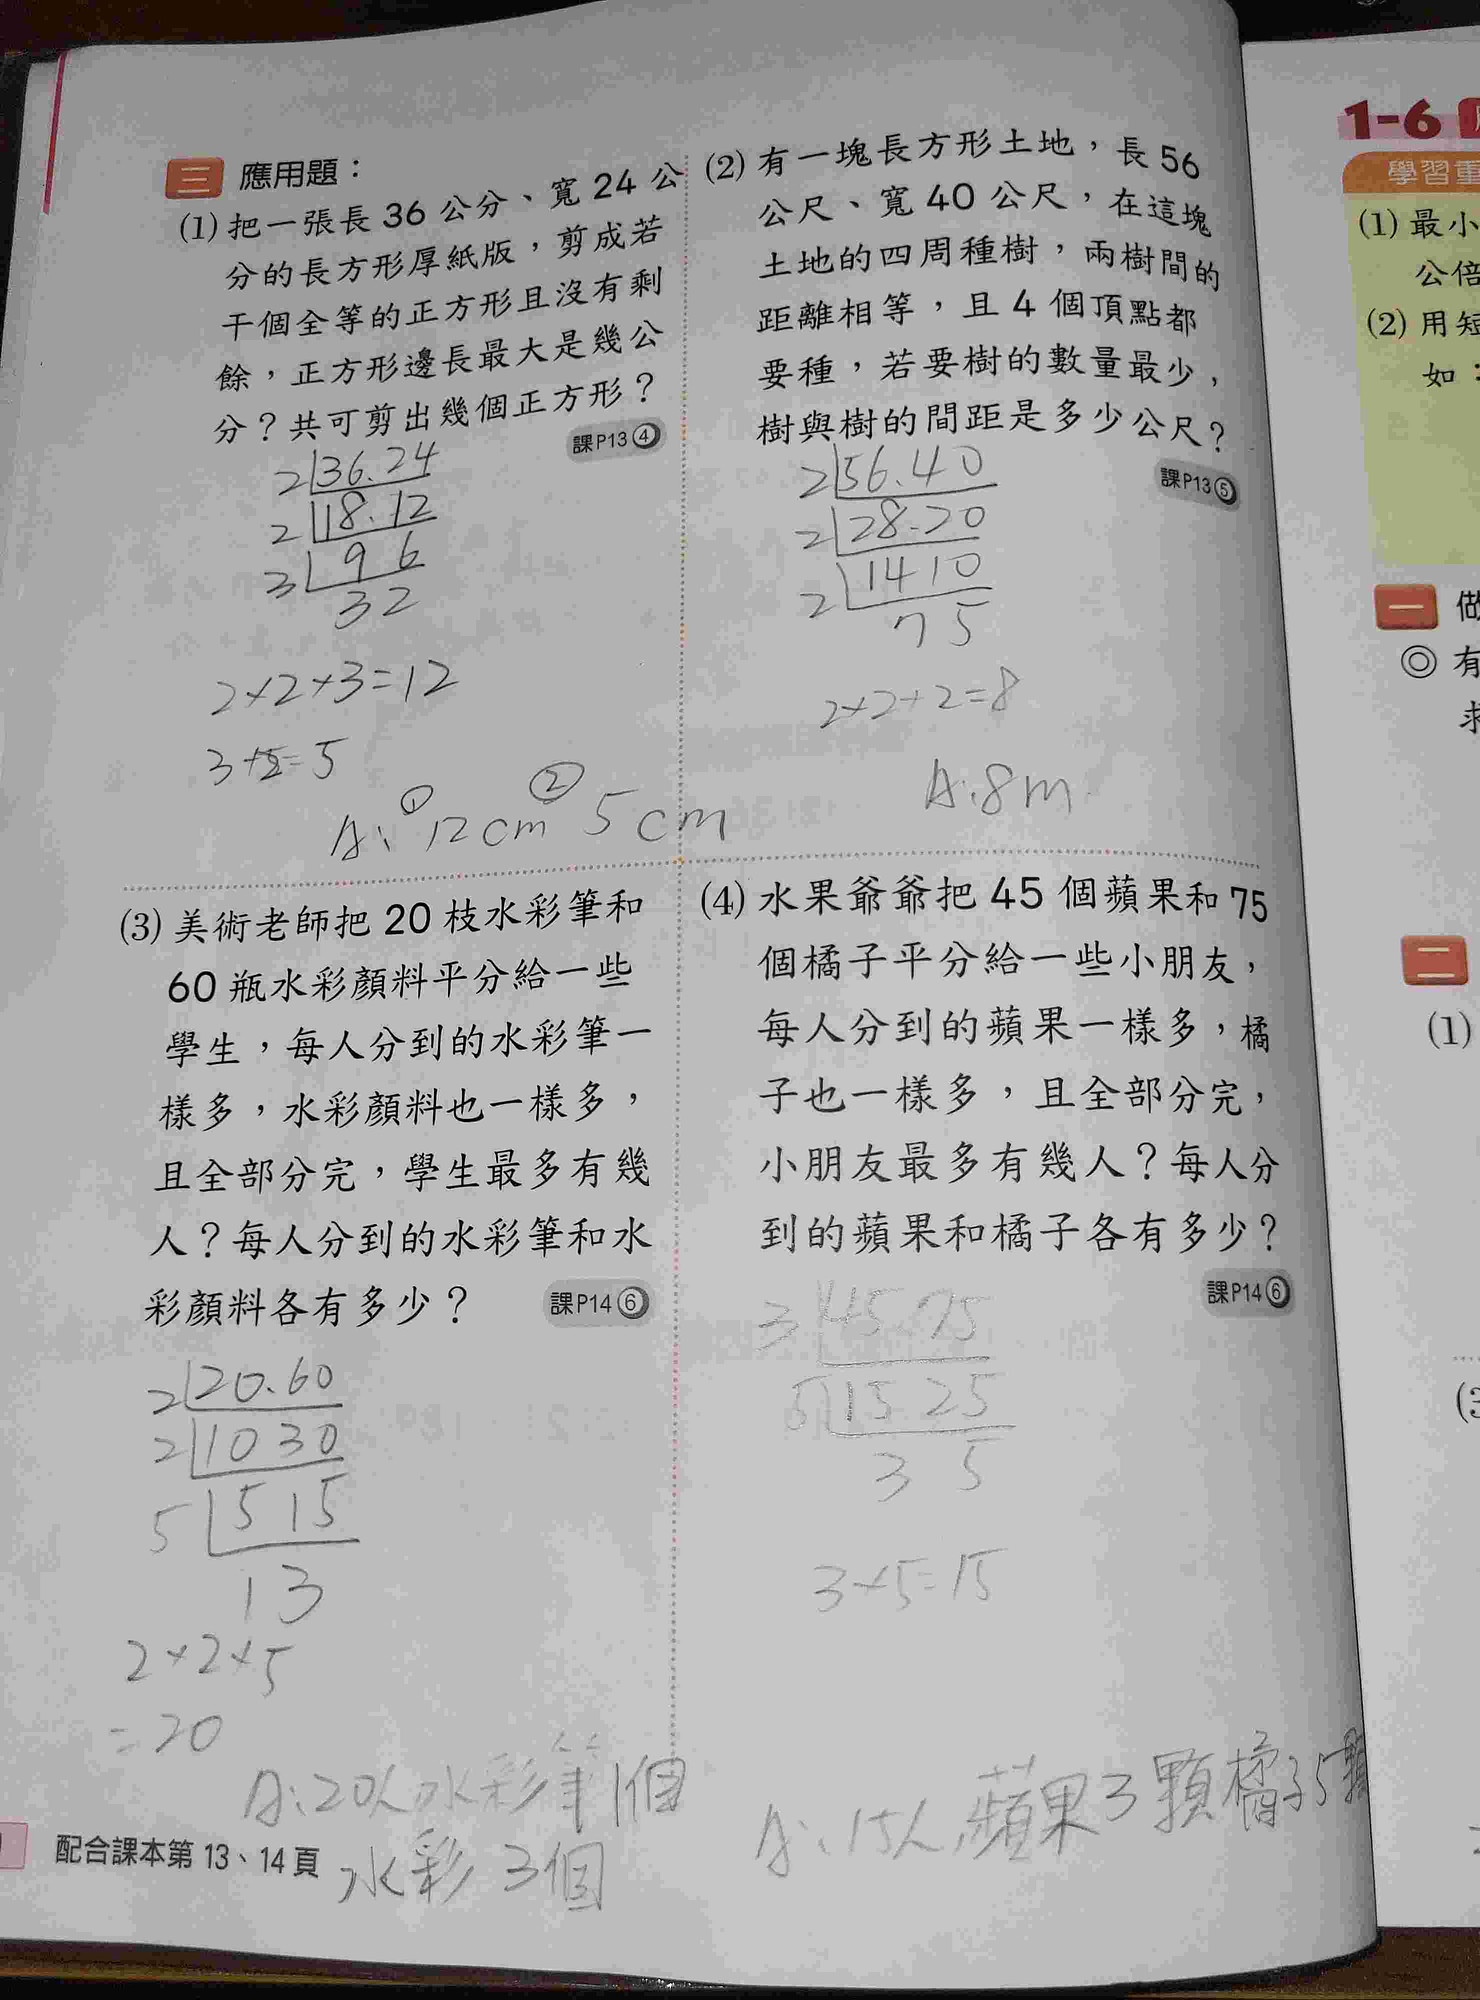 三 應用題：
(1) 把一張長 36 公分、寬 24 公
分的長方形厚紙版，剪成若
干個全等的正方形且沒有剩
餘，正方形邊長最大是幾公
分？共可剪出幾個正方形？
課P13④
2 36.24
2 18.12
3 9 6
3 2
2×2×3=12
3+2=5
A: ①12cm ②5cm
(2) 有一塊長方形土地，長 56
公尺、寬 40 公尺，在這塊
土地的四周種樹，兩樹間的
距離相等，且 4 個頂點都
要種，若要樹的數量最少，
樹與樹的間距是多少公尺？
課P13⑤
2 56.40
2 28.20
2 14 10
7 5
2×2×2=8
A:8m
(3) 美術老師把 20 枝水彩筆和
60 瓶水彩顏料平分給一些
學生，每人分到的水彩筆一
樣多，水彩顏料也一樣多，
且全部分完，學生最多有幾
人？每人分到的水彩筆和水
彩顏料各有多少？
課P14⑥
2 20.60
2 10 30
5 5 15
1 3
2×2×5
=20
A:20人水彩筆1個
水彩 3個
(4) 水果爺爺把 45 個蘋果和 75
個橘子平分給一些小朋友，
每人分到的蘋果一樣多，橘
子也一樣多，且全部分完，
小朋友最多有幾人？每人分
到的蘋果和橘子各有多少？
課P14⑥
3 45.75
5 15 25
3 5
3×5=15
A:15人,蘋果3顆橘子5顆
配合課本第 13、14 頁
1-6
學習重
(1) 最小
公倍
(2) 用短
如：
一 做
◎ 有
求
二
(1)
(3